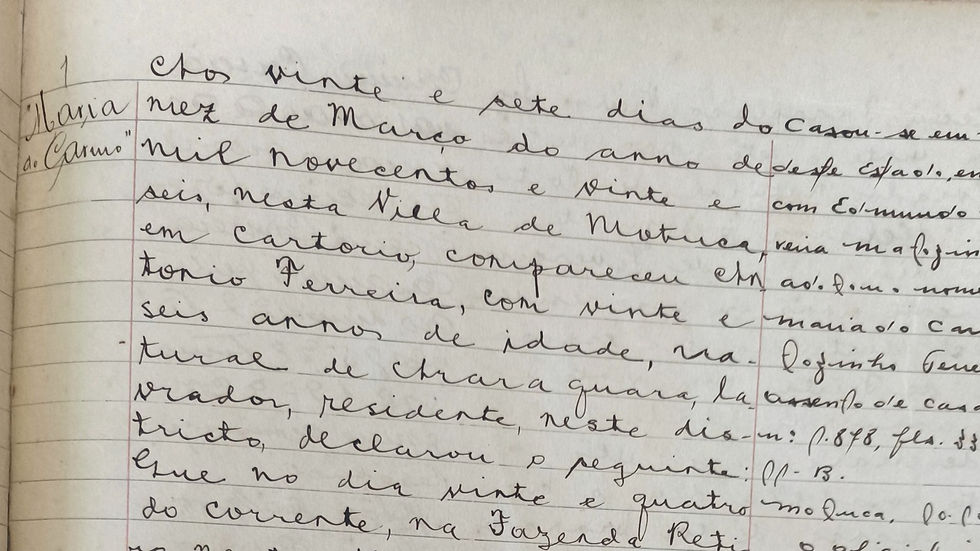 1
Aos vinte e sete dias do
mez de Março do anno de
mil novecentos e vinte e
seis, nesta Villa de Motuca,
em cartorio, compareceu An
tonio Ferreira, com vinte e
seis annos de idade, na-
tural de Araraquara, la
vrador, residente, neste dis-
tricto, declarou o seguinte:
Que no dia vinte e quatro
do corrente, na Fazenda Reti
"Maria
do Carmo"
Casou-se em
deste Estado, em
com Edmundo
nome
Maria do Car
assento de cas
n: 1.878, fls. 33
B.